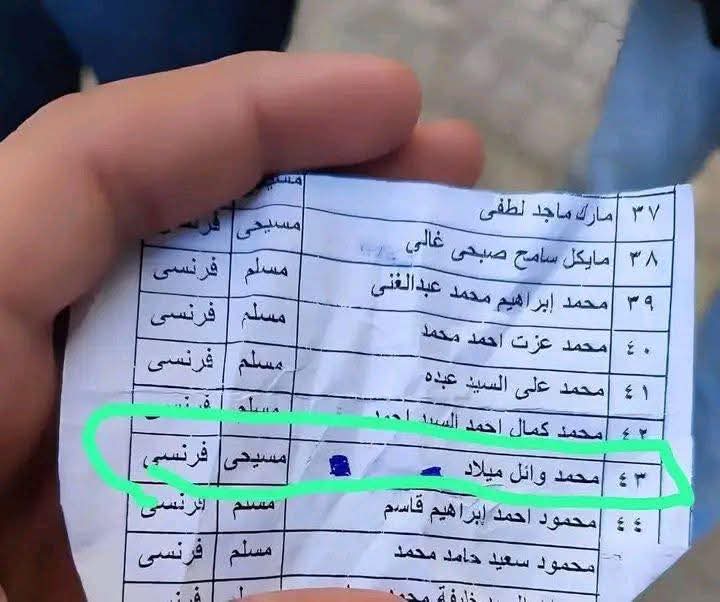 ٣٧ مارك ماجد لطفى
٣٨ مايكل سامح صبحى غالى مسيحى فرنسى
٣٩ محمد إبراهيم محمد عبدالغنى مسلم فرنسى
٤٠ محمد عزت احمد محمد مسلم فرنسى
٤١ محمد على السيد عبده مسلم فرنسى
٤٢ محمد كمال احمد السيد احمد مسلم فرنسى
٤٣ محمد وائل ميلاد مسيحى فرنسى
٤٤ محمود احمد إبراهيم قاسم مسلم فرنسى
محمود سعيد حامد محمد مسلم فرنسى